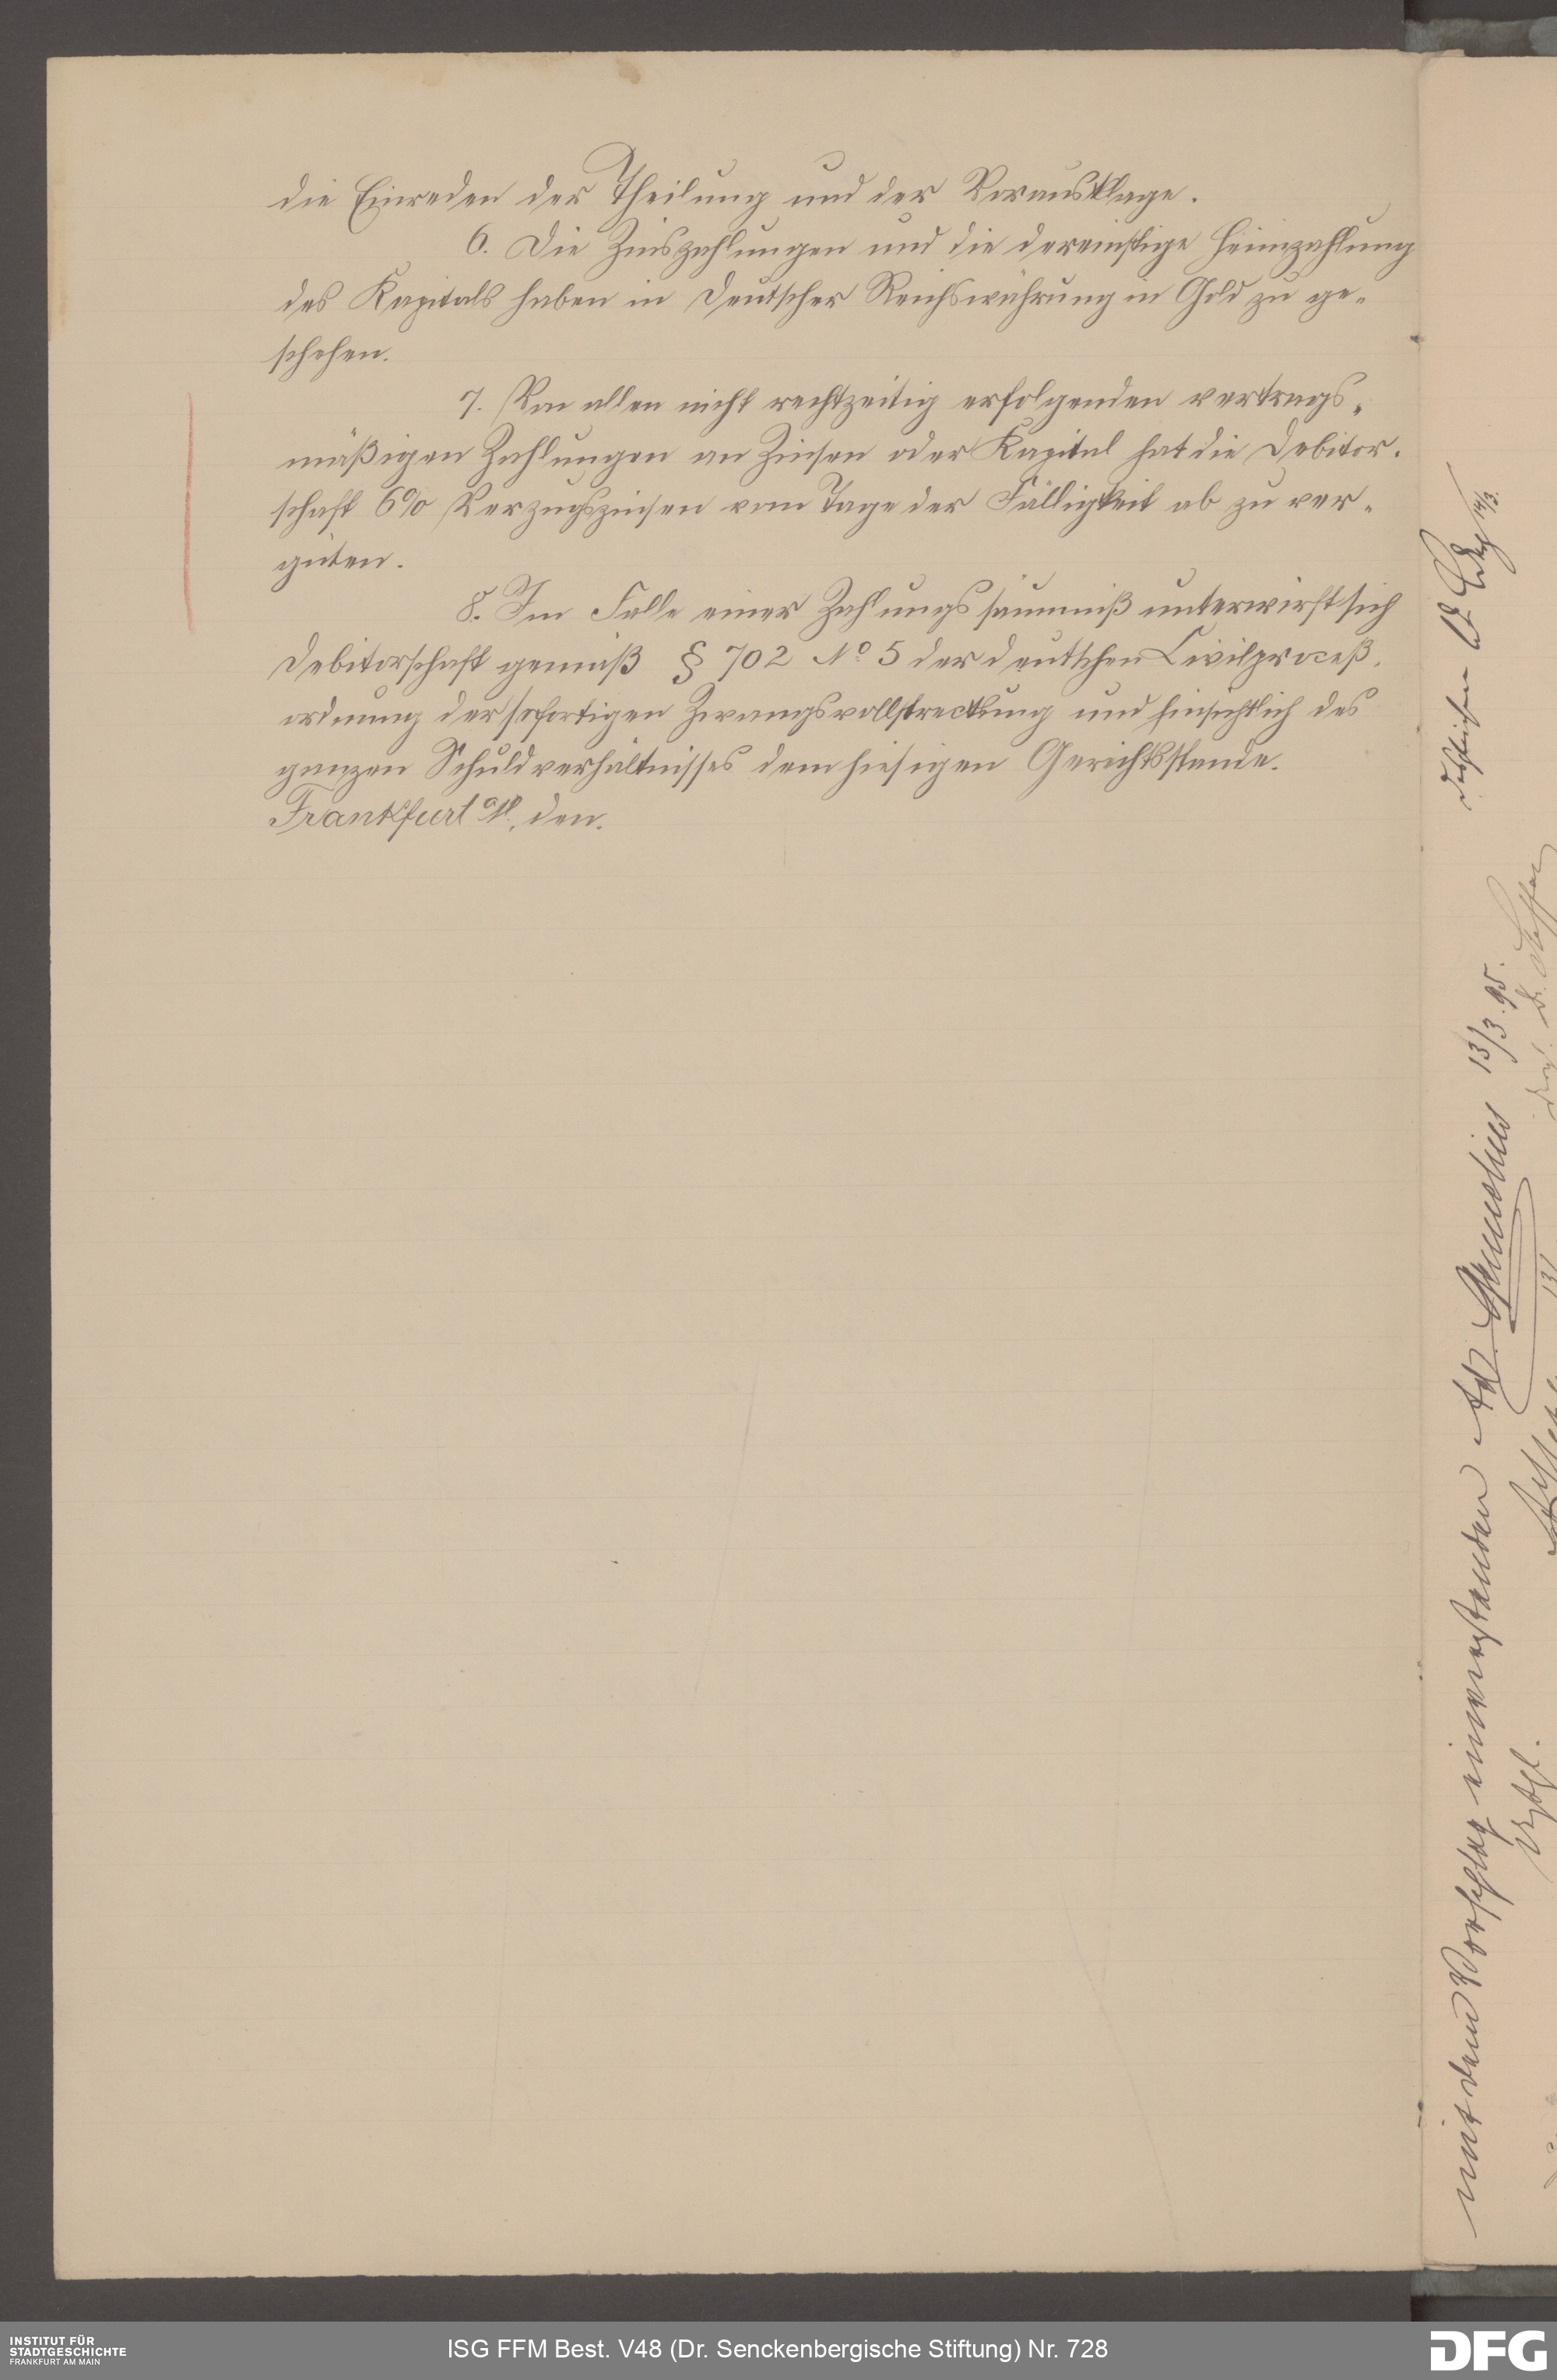 die Einreden der Theilung und der Vorausklage.
6. Die Zinszahlungen und die dereinstige Heimzahlung
des Kapitals haben in Deutscher Reichswährung in Gold zu ge-
schehen.
7. Von allen nicht rechtzeitig erfolgenden vertrags-
mäßigen Zahlungen an Zinsen oder Kapital hat die Debitor-
schaft 6% Verzugszinsen vom Tage der Fälligkeit ab zu ver-
güten.
8. Im Falle einer Zahlungssäumniß unterwirft sich
Debitorschaft gemäß § 702 No. 5 der deutschen Civilproceß-
ordnung der sofortigen Zwangsvollstreckung und hinsichtlich des
ganzen Schuldverhältnisses dem hiesigen Gerichtsstande.
Frankfurt a/M., den.
mit dem Vorschlag einverstanden
13/3.95.
14/3.
INSTITUT FÜR
STADTGESCHICHTE
FRANKFURT AM MAIN
ISG FFM Best. V48 (Dr. Senckenbergische Stiftung) Nr. 728
DFG